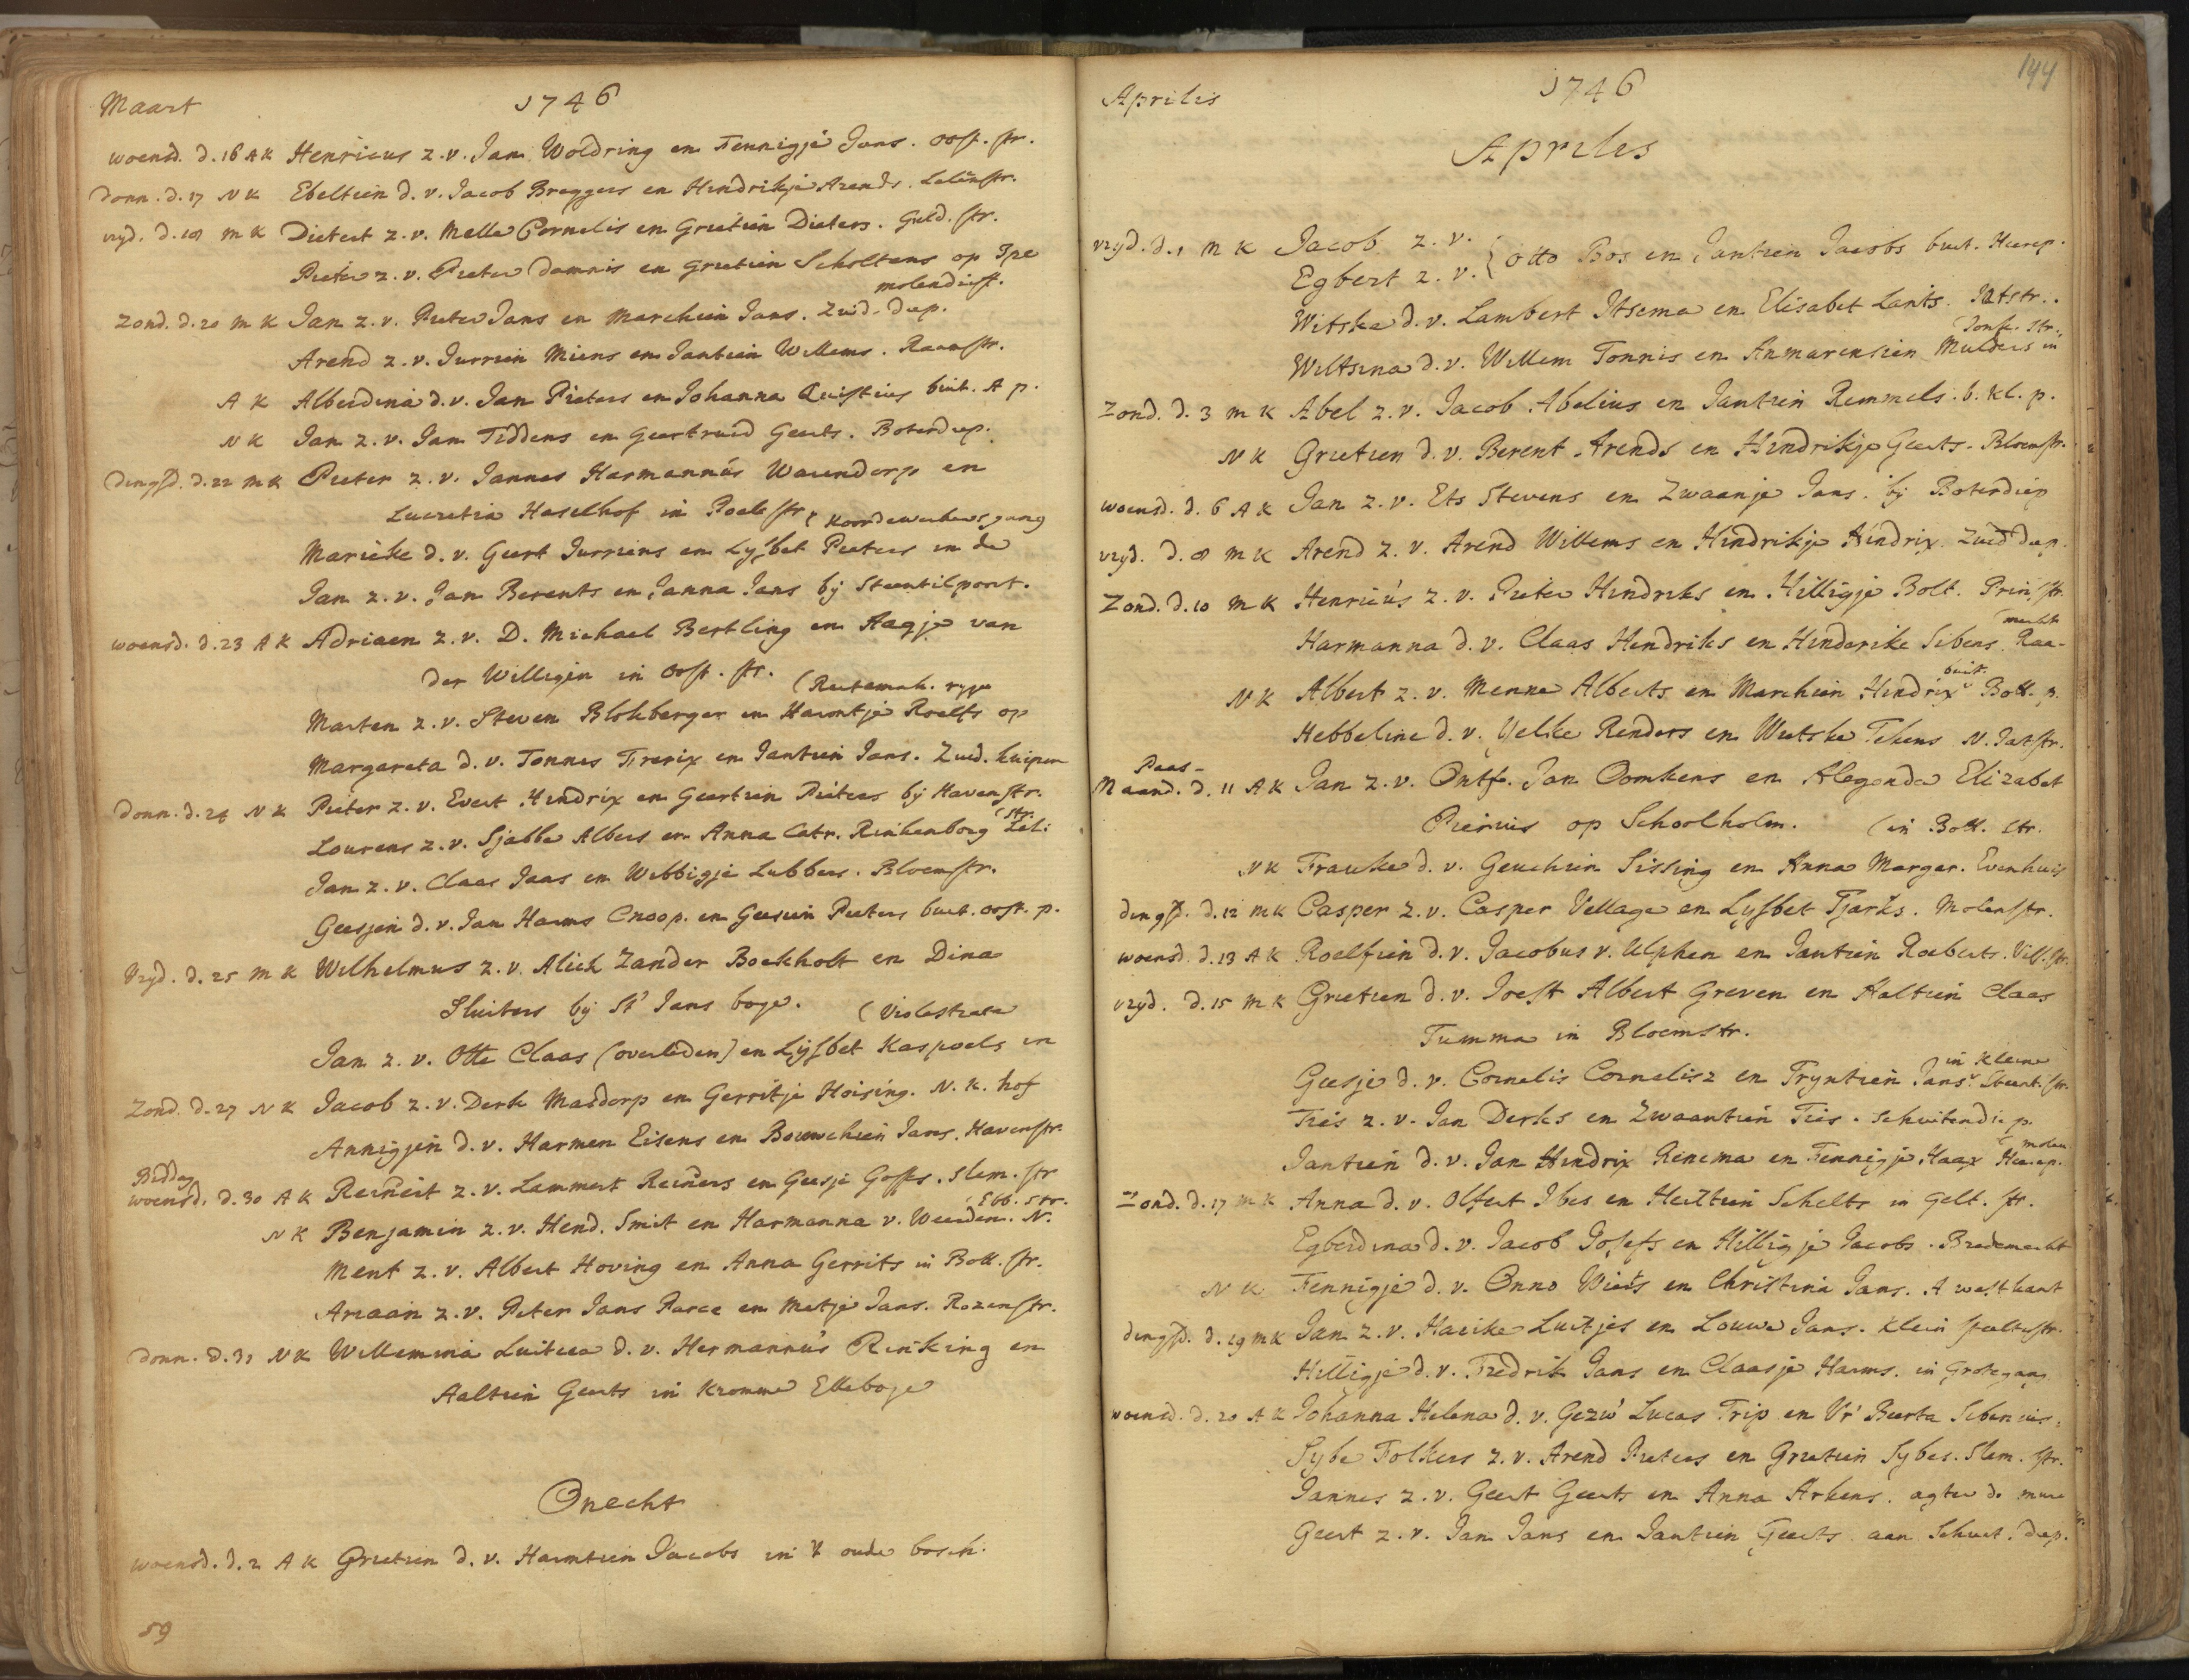 Maart
1746
woensd. d. 16 A K Henricus z. v. Jan Woldring en Fennigje Jans. oost. str.
Donn. d. 17 N K Ebeltien d. v. Jacob Breggers en Hindrikje Arends. Leliestr.
vryd. d. 18 M K Dietert z. v. Melle Cornelis en Grietien Dieters. Guld. str.
Pieter z. v. Pieter Damnis en Grietien Scholtens op Ipe
molendrift.
Zond. d. 20 M K Jan z. v. Pieter Jans en Marchien Jans. Zuid. diep.
Arend z. v. Jurrien Miens en Jantien Willems. Raamstr.
A K Alberdina d. v. Jan Pieters en Johanna Quistius buit. A p.
N K Jan z. v. Jan Tiddens en Geertruid Geerts. Boterdiep.
Dingsd. d. 22 M K Pieter z. v. Jannes Harmannus Warendorp en
Lucretia Haselhof in Poelestr.
( Koordewerkers gang
Marieke d. v. Geert Jurriens en Lysbet Pieters in de
Jan z. v. Jan Berents en Janna Jans by Steentilpoort.
woensd. d. 23 A K Adriaen z. v. D. Michael Bertling en Aagje van
der Willigen in oost. str.
( Reitemak. ryge
Marten z. v. Steven Blokberger en Harmtje Roelfs op
Margareta d. v. Tonnes Frerix en Jantien Jans. Zuid. kuipen
Donn. d. 24 N K Pieter z. v. Evert Hindrix en Geertien Pieters by Havenstr.
( str.
Lourens z. v. Sjabbe Albers en Anna Catr. Rinkenborg Leli:
Jan z. v. Claas Jaas en Webbigje Lubbers. Bloemstr.
Geesjen d. v. Jan Harms Cnoop. en Geesien Pieters buit. oost. p.
Vryd. d. 25 M K Wilhelmus z. v. Alick Zander Boekholt en Dina
Sluiters by St Jans boge.
( Violestrate
Jan z. v. Otte Claas (overleden) en Lysbet Kaspoels in
Zond. d. 27 N K Jacob z. v. Derk Masdorp en Gerritje Hoising. N. K. hof
Annigjen d. v. Harmen Eisens en Bouwchien Jans. Havenstr.
Biddag
woensd. d. 30 A K Reinert z. v. Lammert Reiners en Geesje Gosses. slem. str
Ebb. str.
N K Benjamin z. v. Hend. Smit en Harmanna v. Weerden. N.
Ment z. v. Albert Hoving en Anna Gerrits in Bott. str.
Ariaan z. v. Peter Jans Parce en Metje Jans. Rozenstr.
Donn. d. 31 N K Willemina Luitica d. v. Hermannus Rinking en
Aaltien Geerts in Kromme Elleboge
Onecht
woensd. d. 2 A K Grietien d. v. Harmtien Jacobs in 't oude bosch.
59
144
Aprilis
1746
Apriles
vryd. d. 1 M K Jacob z. v.
Egbert z. v. { Otto Bos en Jantien Jacobs buit. Heerep.
Witske d. v. Lambert Itsema en Elisabet Lants. Jatstr.
( Jonk. str.
Wiltsina d. v. Willem Tonnis en Anmarensien Mulders in
Zond. d. 3 M K Abel z. v. Jacob Abelius en Jantien Remmels. b. Kl. p.
N K Grietien d. v. Berent Arends en Hindrikje Geerts. Bloemstr.
woensd. d. 6 A K Jan z. v. Ets Stevens en Zwaantje Jans. by Boterdiep
vryd. d. 8 M K Arend z. v. Arend Willems en Hindrikje Hindrix. Zuid diep.
Zond. d. 10 M K Henricus z. v. Pieter Hindriks en Hilligje Bolt. Prin. str.
( markt
Harmanna d. v. Claas Hendriks en Hinderike Sibens. Raa-
buit.
N K Albert z. v. Menne Alberts en Marchien Hindrix Bott. p.
Hebbeline d. v. Yelke Renders en Wietske Tekens N. Jatstr.
Paas-
Maand. d. 11 A K Jan z. v. Ontf. Jan Oomkens en Alegonda Elizabet
Pierius op Schoolholm.
( in Bott. str.
N K Frauke d. v. Geuchien Sissing en Anna Margar. Evenhuis
dingsd. d. 12 M K Casper z. v. Casper Vellage en Lysbet Tjarks. Molenstr.
woensd. d. 13 A K Roelfien d. v. Jacobus v. Ulphen en Jantien Roeberts. Viss. str.
vryd. d. 15 M K Grietien d. v. Joest Albert Greven en Aaltien Claas
Tumma in Bloemstr.
in kleine
Geesje d. v. Cornelis Cornelisz en Tryntien Jans. Steent. str.
Ties z. v. Jan Derks en Zwaantien Ties. schuitendiep
( molen
Jantien d. v. Jan Hindrix Rinema en Fennigje Haax Heerep.
Zond. d. 17 M K Anna d. v. Olfert Ibes en Hiltien Schelts in Gelt. str.
Egberdina d. v. Jacob Josefs en Hilligje Jacobs. Bredemarkt
N K Fennigje d. v. Onno Wierts en Christina Jans. A westkant
dingsd. d. 19 M K Jan z. v. Harike Luitjes en Louwe Jans. Klein peltestr.
Hilligje d. v. Fredrik Jans en Claasje Harms. in Grotegang
woensd. d. 20 A K Johanna Helena d. v. Gezw. Lucas Trip en Vr. Beerta Sibenius.
Sybe Folkers z. v. Arend Pieters en Grietien Sybes. Slem. str.
Jannes z. v. Geert Geerts en Anna Arkens. agter de mure
Geert z. v. Jan Jans en Jantien Geerts aan Schuit. diep.